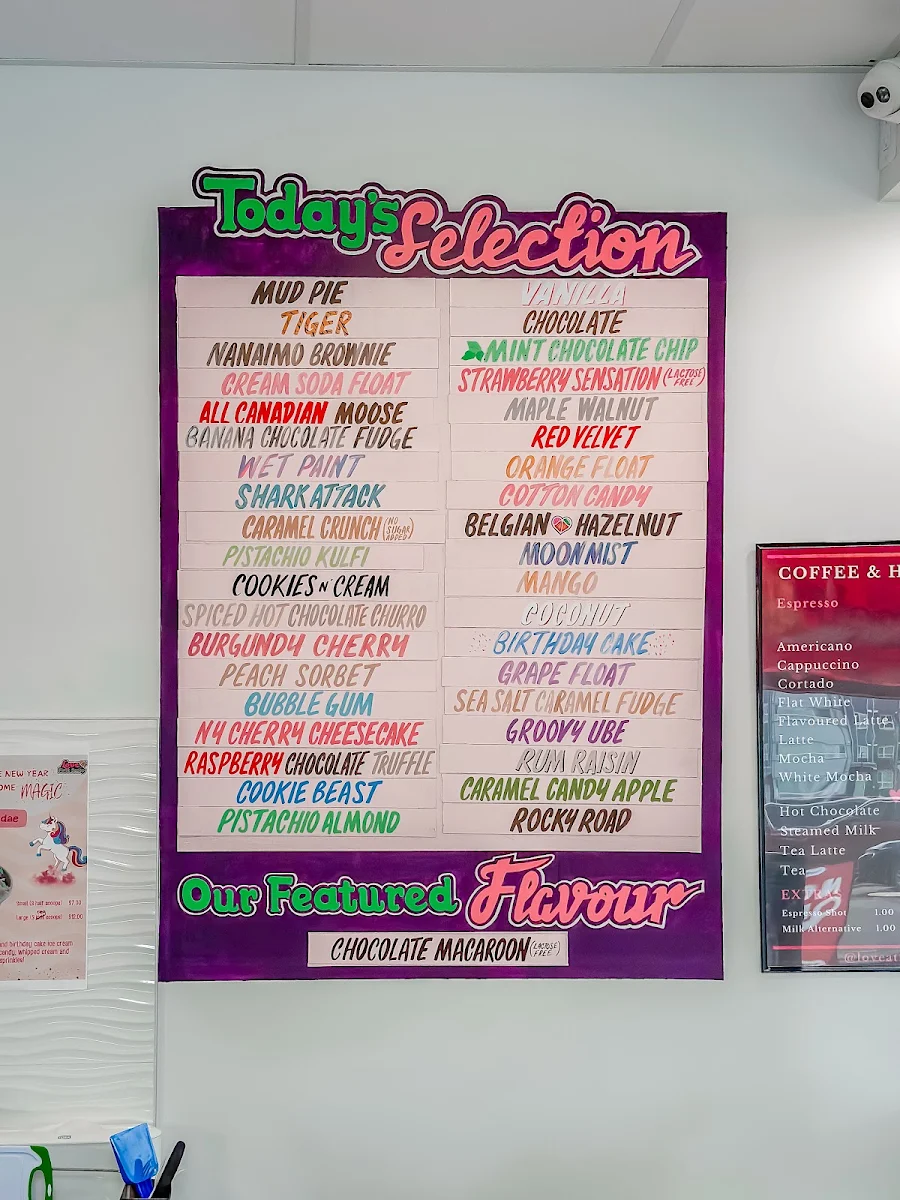 Today's Selection
MUD PIE
TIGER
NANAIMO BROWNIE
CREAM SODA FLOAT
ALL CANADIAN MOOSE
BANANA CHOCOLATE FUDGE
WET PAINT
SHARK ATTACK
CARAMEL CRUNCH (NO SUGAR ADDED)
PISTACHIO KULFI
COOKIES N' CREAM
SPICED HOT CHOCOLATE CHURRO
BURGUNDY CHERRY
PEACH SORBET
BUBBLE GUM
NY CHERRY CHEESECAKE
RASPBERRY CHOCOLATE TRUFFLE
COOKIE BEAST
PISTACHIO ALMOND
VANILLA
CHOCOLATE
MINT CHOCOLATE CHIP
STRAWBERRY SENSATION (LACTOSE FREE)
MAPLE WALNUT
RED VELVET
ORANGE FLOAT
COTTON CANDY
BELGIAN HAZELNUT
MOON MIST
MANGO
COCONUT
BIRTHDAY CAKE
GRAPE FLOAT
SEA SALT CARAMEL FUDGE
GROOVY UBE
RUM RAISIN
CARAMEL CANDY APPLE
ROCKY ROAD
Our Featured Flavour
CHOCOLATE MACAROON (LACTOSE FREE)
COFFEE & H
Espresso
Americano
Cappuccino
Cortado
Flat White
Flavoured Latte
Latte
Mocha
White Mocha
Hot Chocolate
Steamed Milk
Tea Latte
Tea
EXTRAS
Espresso Shot 1.00
Milk Alternative 1.00
@loveat
E NEW YEAR
OME MAGIC
dae
and birthday cake ice cream
candy, whipped cream and
sprinkles!